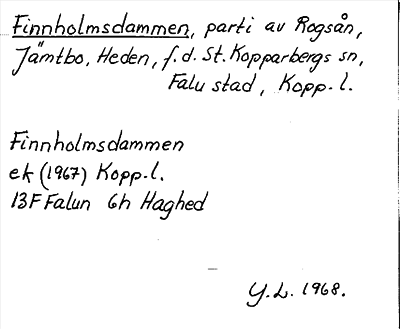 Finnholmsdammen, parti av Rogsån,
Jämtbo, Heden, f.d. St. Kopparbergs sn,
Falu stad, Kopp. l.
Finnholmsdammen
ek (1967) Kopp.l.
13F Falun 6h Haghed
Y.L. 1968.